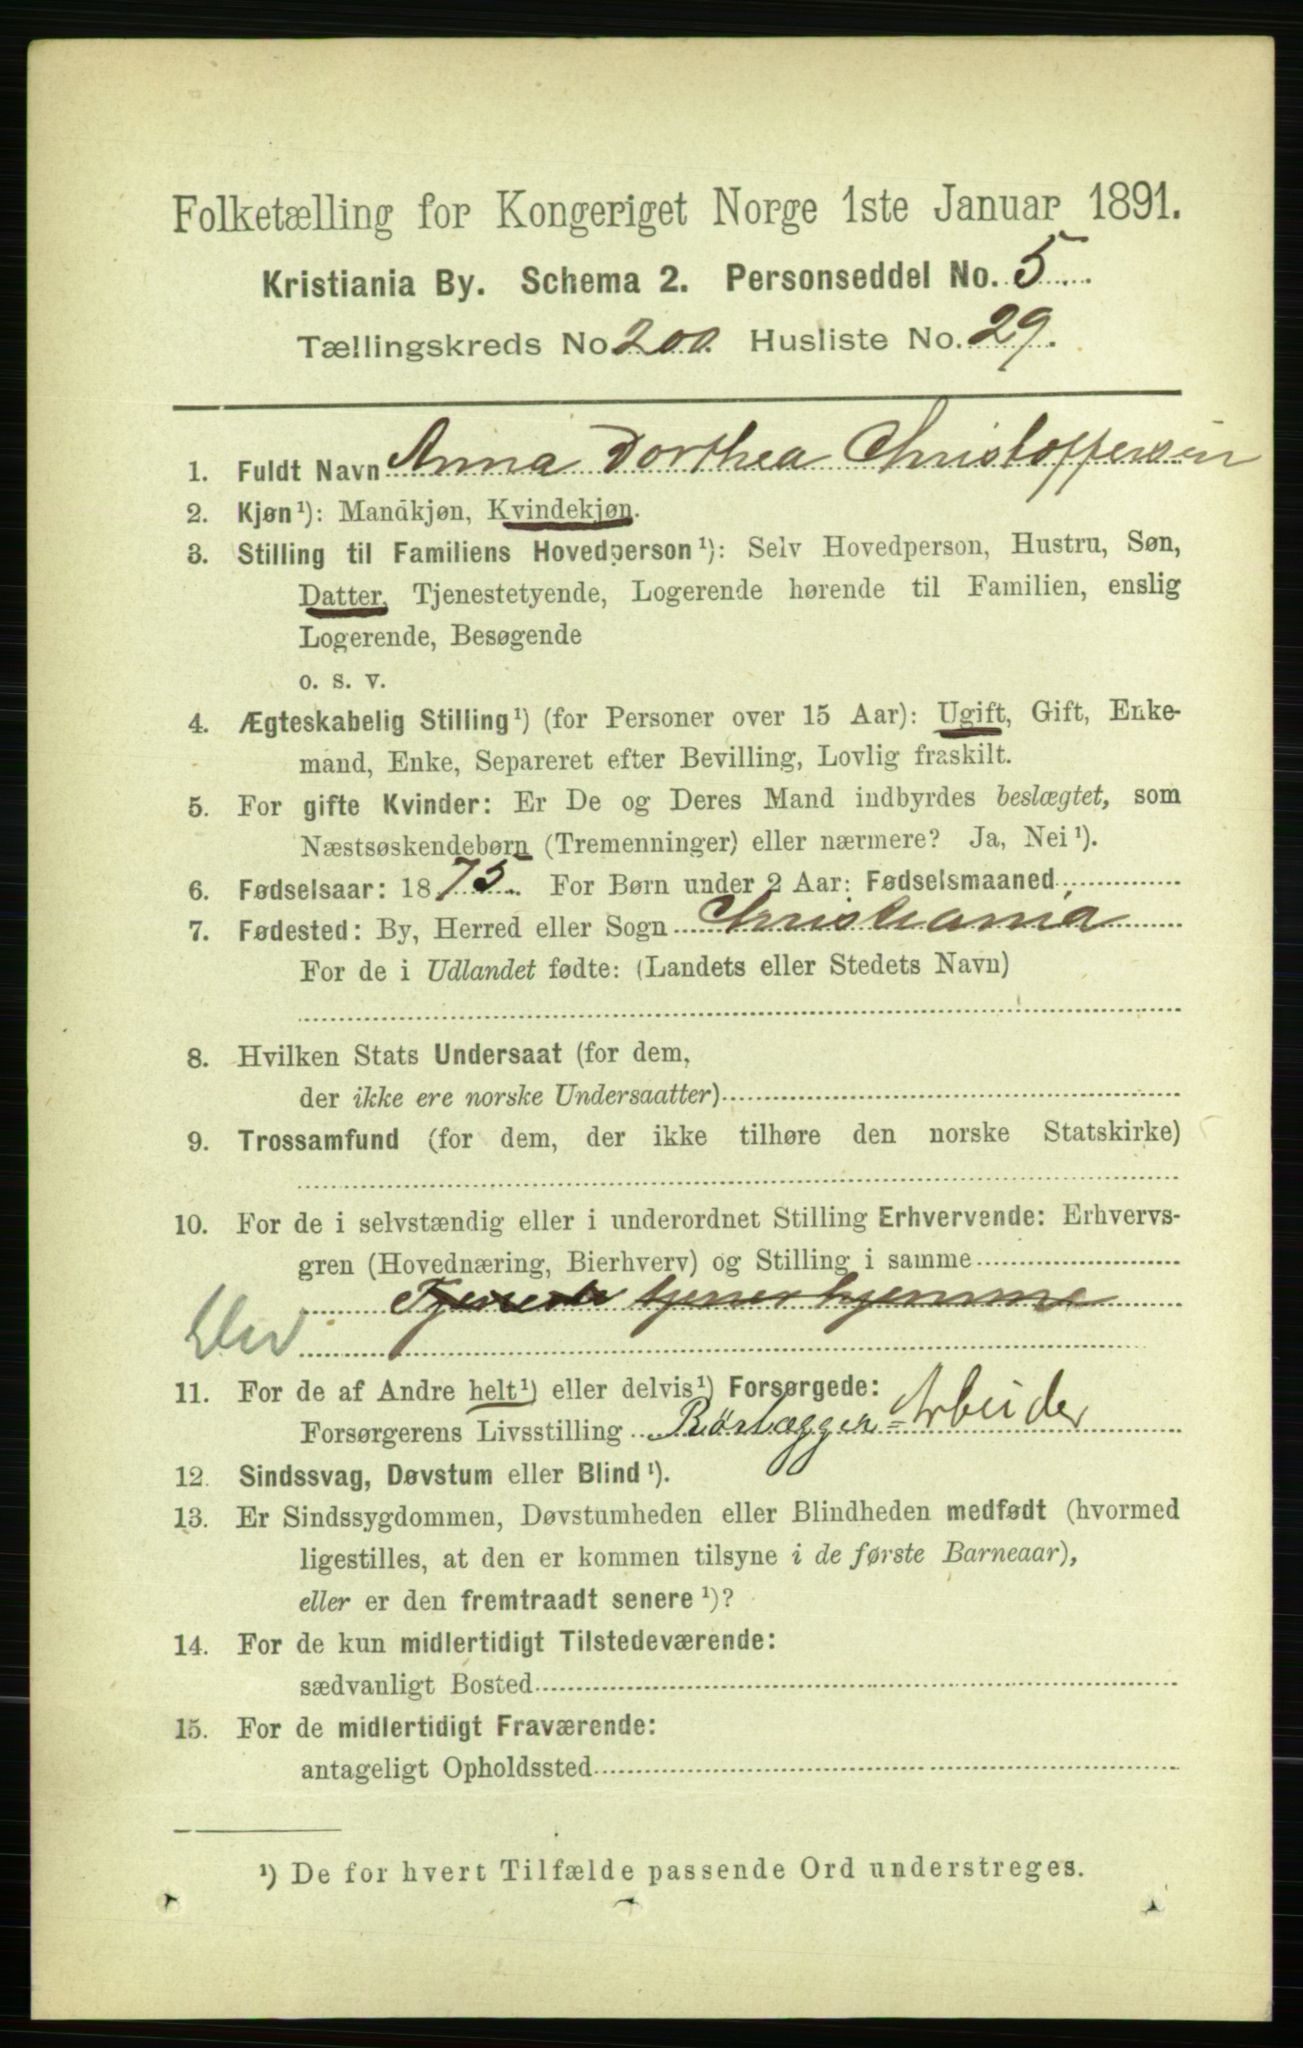 Folketælling for Kongeriget Norge 1ste Januar 1891.
Kristiania By. Schema 2. Personseddel No. 5
Tællingskreds No 200. Husliste No. 29.
1. Fuldt Navn Anna Dorthea Christoffersen
2. Kjøn¹): Mandkjøn, Kvindekjøn.
3. Stilling til Familiens Hovedperson¹): Selv Hovedperson, Hustru, Søn,
Datter, Tjenestetyende, Logerende hørende til Familien, enslig
Logerende, Besøgende
o. s. v.
4. Ægteskabelig Stilling¹) (for Personer over 15 Aar): Ugift, Gift, Enke-
mand, Enke, Separeret efter Bevilling, Lovlig fraskilt.
5. For gifte Kvinder: Er De og Deres Mand indbyrdes beslægtet, som
Næstsøskendebørn (Tremenninger) eller nærmere? Ja, Nei¹).
6. Fødselsaar: 1875. For Børn under 2 Aar: Fødselsmaaned
7. Fødested: By, Herred eller Sogn Christiania
For de i Udlandet fødte: (Landets eller Stedets Navn)
8. Hvilken Stats Undersaat (for dem,
der ikke ere norske Undersaatter)
9. Trossamfund (for dem, der ikke tilhøre den norske Statskirke)
10. For de i selvstændig eller i underordnet Stilling Erhvervende: Erhvervs-
gren (Hovednæring, Bierhverv) og Stilling i samme
hjemme
11. For de af Andre helt¹) eller delvis¹) Forsørgede:
Forsørgerens Livsstilling Rørlægger-Arbeider
12. Sindssvag, Døvstum eller Blind¹).
13. Er Sindssygdommen, Døvstumheden eller Blindheden medfødt (hvormed
ligestilles, at den er kommen tilsyne i de første Barneaar),
eller er den fremtraadt senere¹)?
14. For de kun midlertidigt Tilstedeværende:
sædvanligt Bosted
15. For de midlertidigt Fraværende:
antageligt Opholdssted
¹) De for hvert Tilfælde passende Ord understreges.